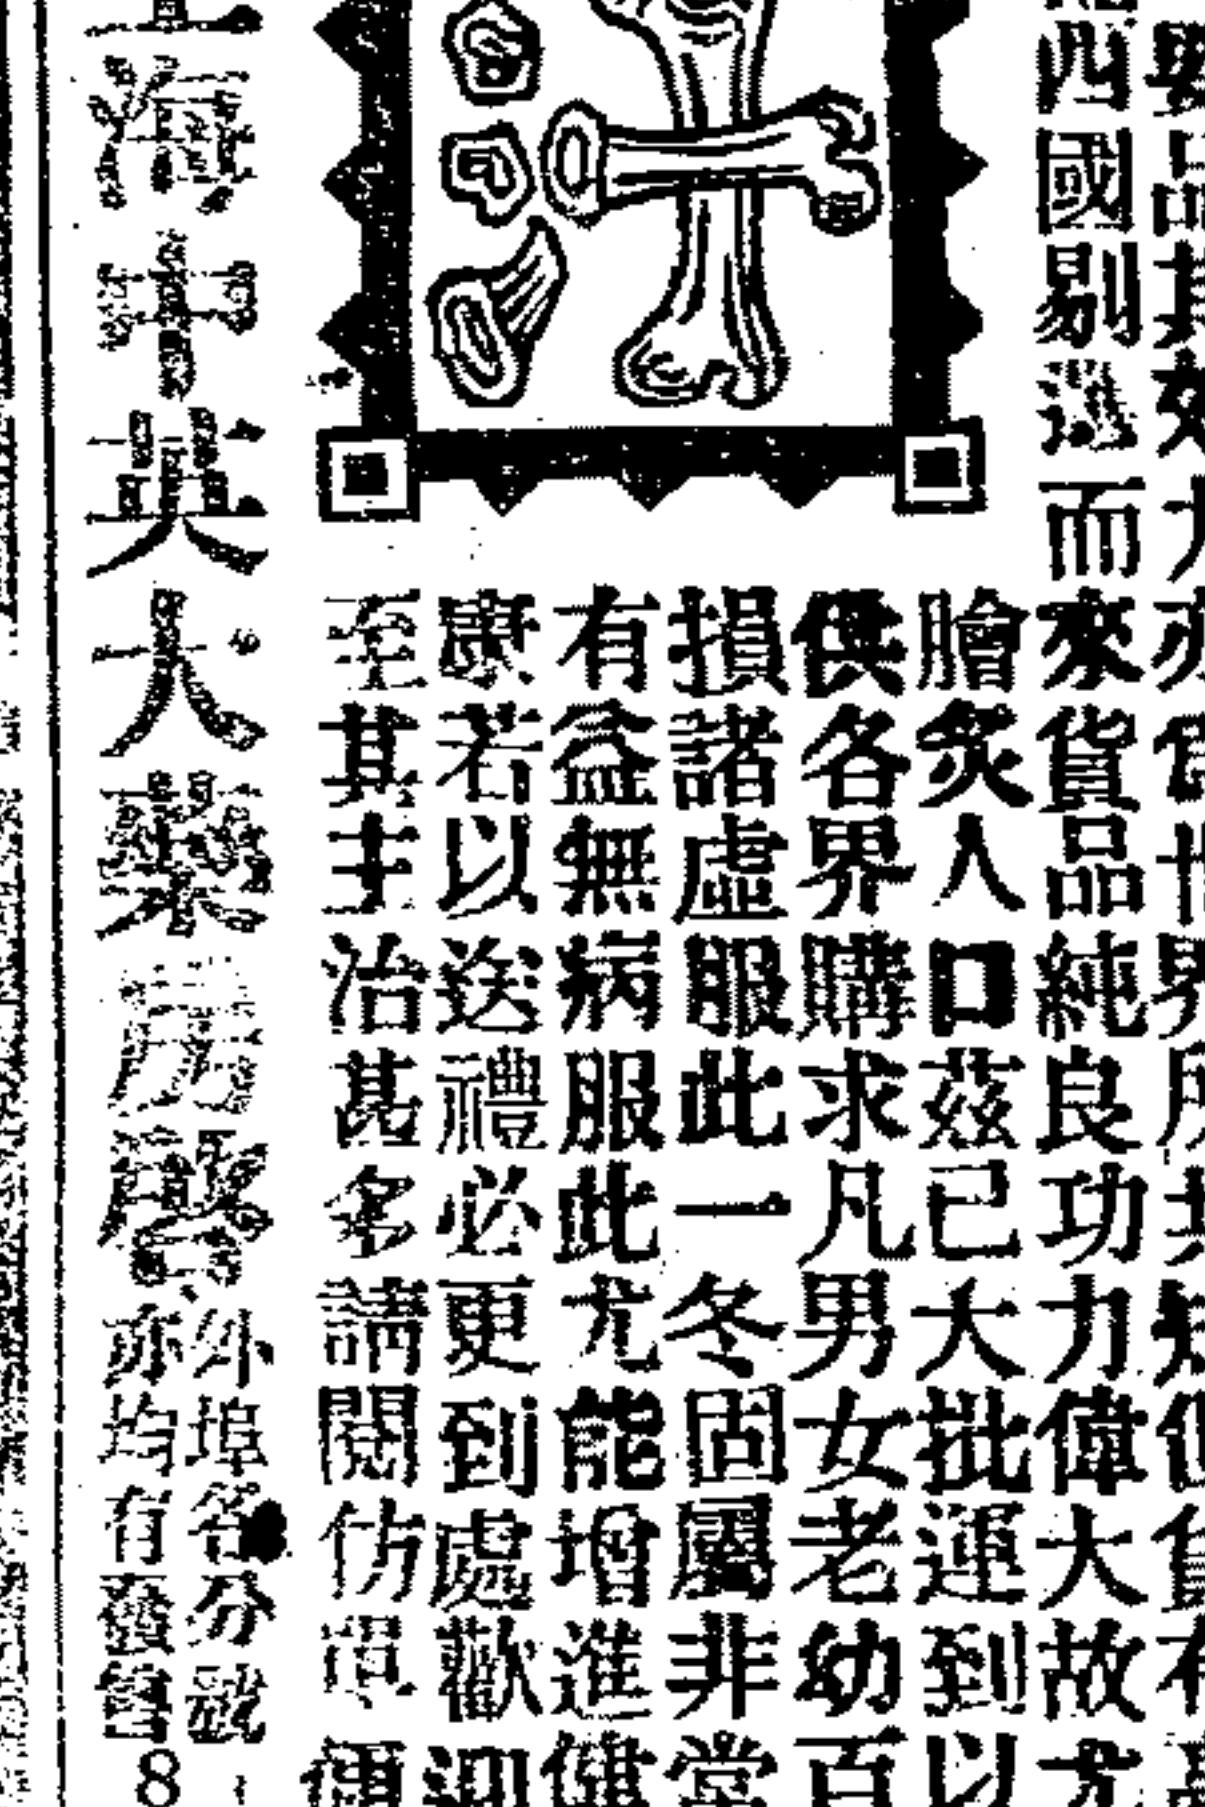 西國剔選而來貨品純良功力偉大故尤
膾炙人口茲已大批運到以
供各界購求凡男女老幼百
損諸虛服此一冬固屬非常
有益無病服此尤能增進健
康若以送禮必更到處歡迎
至其主治甚多請閱仿單便
上海中英大藥房啓
外埠各分號
亦均有發售
8